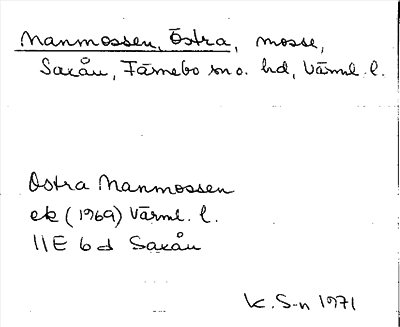 Nanmossen, Östra, mosse,
Saxån, Färnebo sn o. hd, Värml. l.
Östra Nanmossen
ek (1969) Värml. l.
11E 6d Saxån
K. S-n 1971